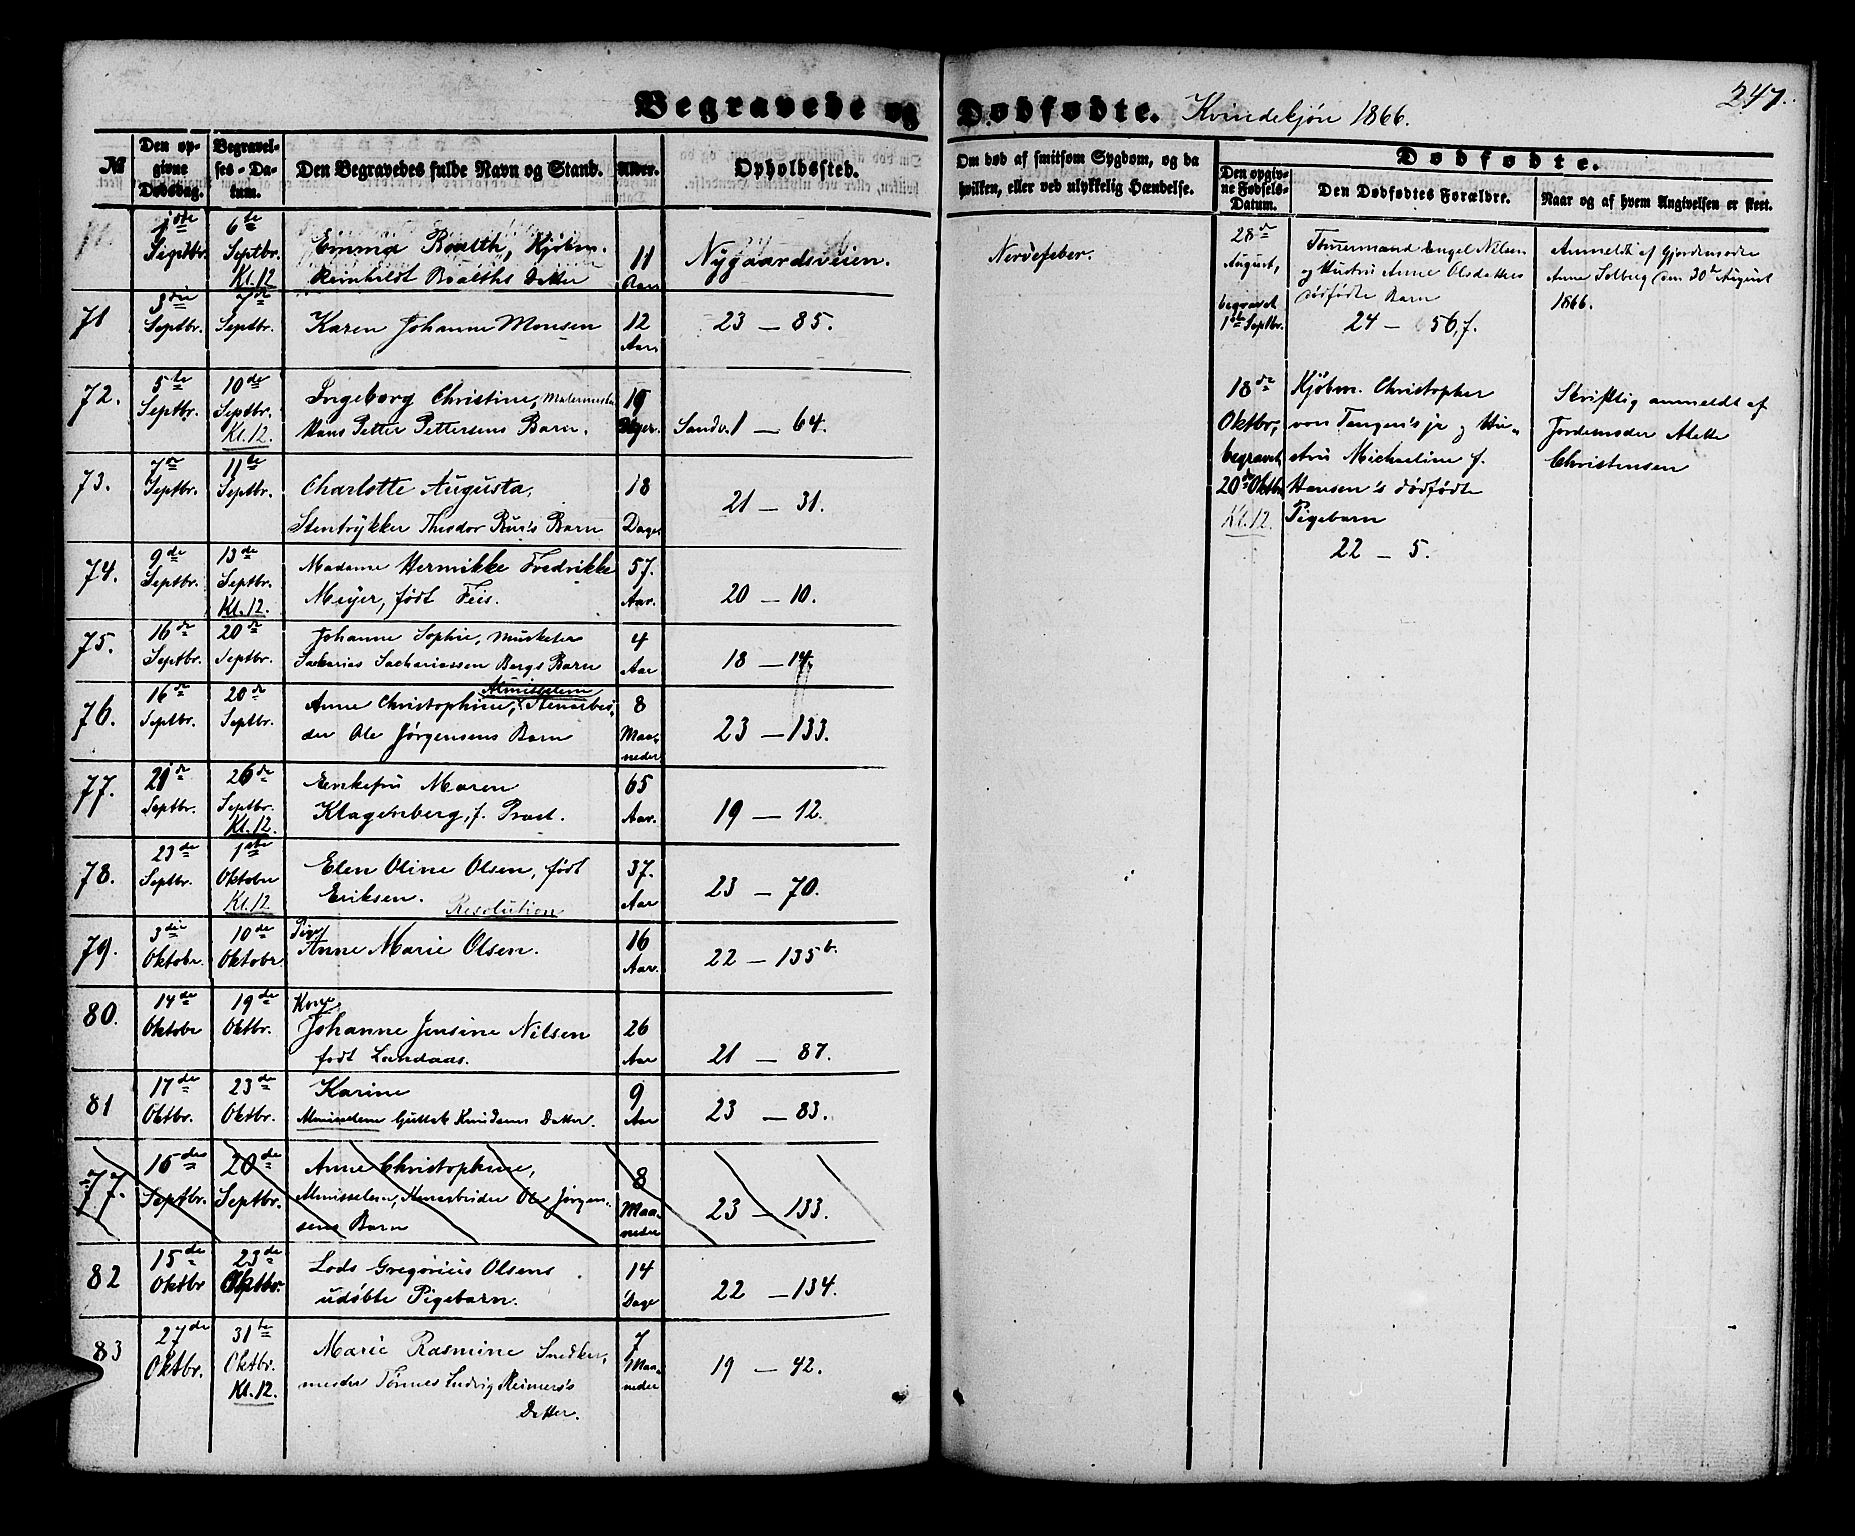 Begravede og Dødfødte. Kvindekjøn 1866.
247.
№
Den op-
givne
Dødsdag.
Begravel-
ses-Da-
tum.
Den Begravedes fulde Navn og Stand.
Alder.
Opholdssted.
Om død af smitsom Sygdom, og da
hvilken, eller ved ulykkelig Hændelse.
Dødfødte.
Den opgiv-
ne Fødsels-
Datum.
Den Dødfødtes Forældre.
Naar og af hvem Angivelsen er skeet.
1ste
Septbr.
6te
Septbr.
Kl. 12
Emma Boalth, Kjøbm.
Reinholdt Boalths Datter
11
Aar
Nygaardsveien.
Nervefeber.
71
3die
Septbr.
7de
Septbr.
Karen Johanne Monsen
12
Aar.
23 — 85.
72.
5te
Septbr.
10de
Septbr.
Kl. 12
Ingeborg Christine, Malermester
Hans Petter Pettersens Barn.
19
Dager.
Sandv. 1 — 64.
73.
7de
Septbr.
11te
Septbr.
Charlotte Augusta,
Stentrykker Theodor Bus's Barn
18
Dage
21 — 31.
74.
9de
Septbr.
13de
Septbr.
Kl. 12.
Madame Hermikke Fredrikke
Meyer, født Feis.
57.
Aar.
20 — 10.
75.
16de
Septbr.
20de
Septbr.
Johanne Sophie, Musketer
Sakarias Sachariassen Bergs Barn
4
Aar
18 — 14.
76.
16de
Septbr.
20de
Septbr.
Almisselem
Anne Christophine, Stenarbei-
der Ole Jørgensens Barn
8
Maa-
neder
23 — 133.
77.
21de
Septbr.
26de
Septbr.
Kl. 12.
Enkefru Maren
Klagenberg, f. Prast.
65
Aar.
19 — 12.
78.
23de
Septbr.
1ste
Oktober
Kl. 12
Elen Oline Olsen, født
Eriksen. Resolution
37.
Aar
23 — 70.
79.
3die
Oktobr.
10de
Oktobr
Pige
Anne Marie Olsen.
16
Aar.
22 — 135b.
80.
14de
Oktober
19de
Oktbr.
Kone
Johanne Jensine Nilsen
født Landaas.
26
Aar
21 — 87.
81
17de
Oktbr.
23de
Oktbr.
Karine
Almisselem Guttak Knudsens Datter.
9
Aar
23 — 83.
77.
16de
Septbr.
20de
Septbr.
Anne Christophine,
Almisselem, Stenarbeider Ole Jørgen-
sens Barn
8
Maa-
neder
23 — 133.
82
15de
Oktbr
23de
Oktbr.
Lods Gregorius Olsens
udøbte Pigebarn.
14
Dage
22 — 134.
83
27de
Oktbr.
31te
Oktbr.
Kl. 12.
Marie Rasmine Snedker-
mester Tönnes Ludvig Reimers's
Datter.
7
Maa-
neder
19 — 42.
28de
August,
begravet
1ste Septbr.
Tømermand Engel Nilsen
og Hustru Anne Olsdatters
dødfødte Barn
24 — 56, f.
Anmeldt af Gjordemoder
Anne Solberg den 30te August
1866.
18de
Oktbr,
begravet
20de Oktbr
Kl. 12.
Kjøbm. Christopher
von Tangen's jr og Hu-
stru Michaeline f.
Hansen's dødfødte
Pigebarn
22 — 5.
Skriftlig anmeldt af
Jordemoder Alette
Christensen